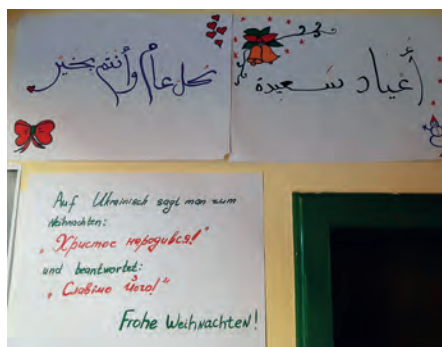 أعياد سعيدة
كل عام وأنتم بخير
Auf Ukrainisch sagt man zum
Weihnachten:
„Христос народився!"
und beantwortet:
„Славімо Його!"
Frohe Weihnachten!